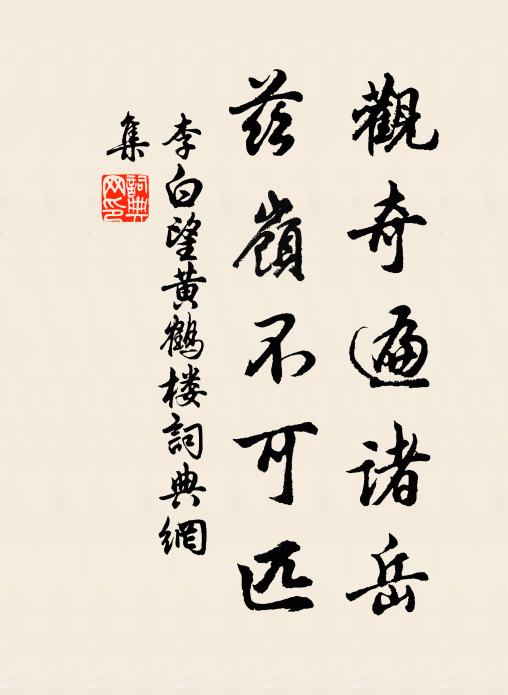 觀奇遍諸岳
茲嶺不可匹
李白望黄鶴楼詞典網
集
詞典
网印